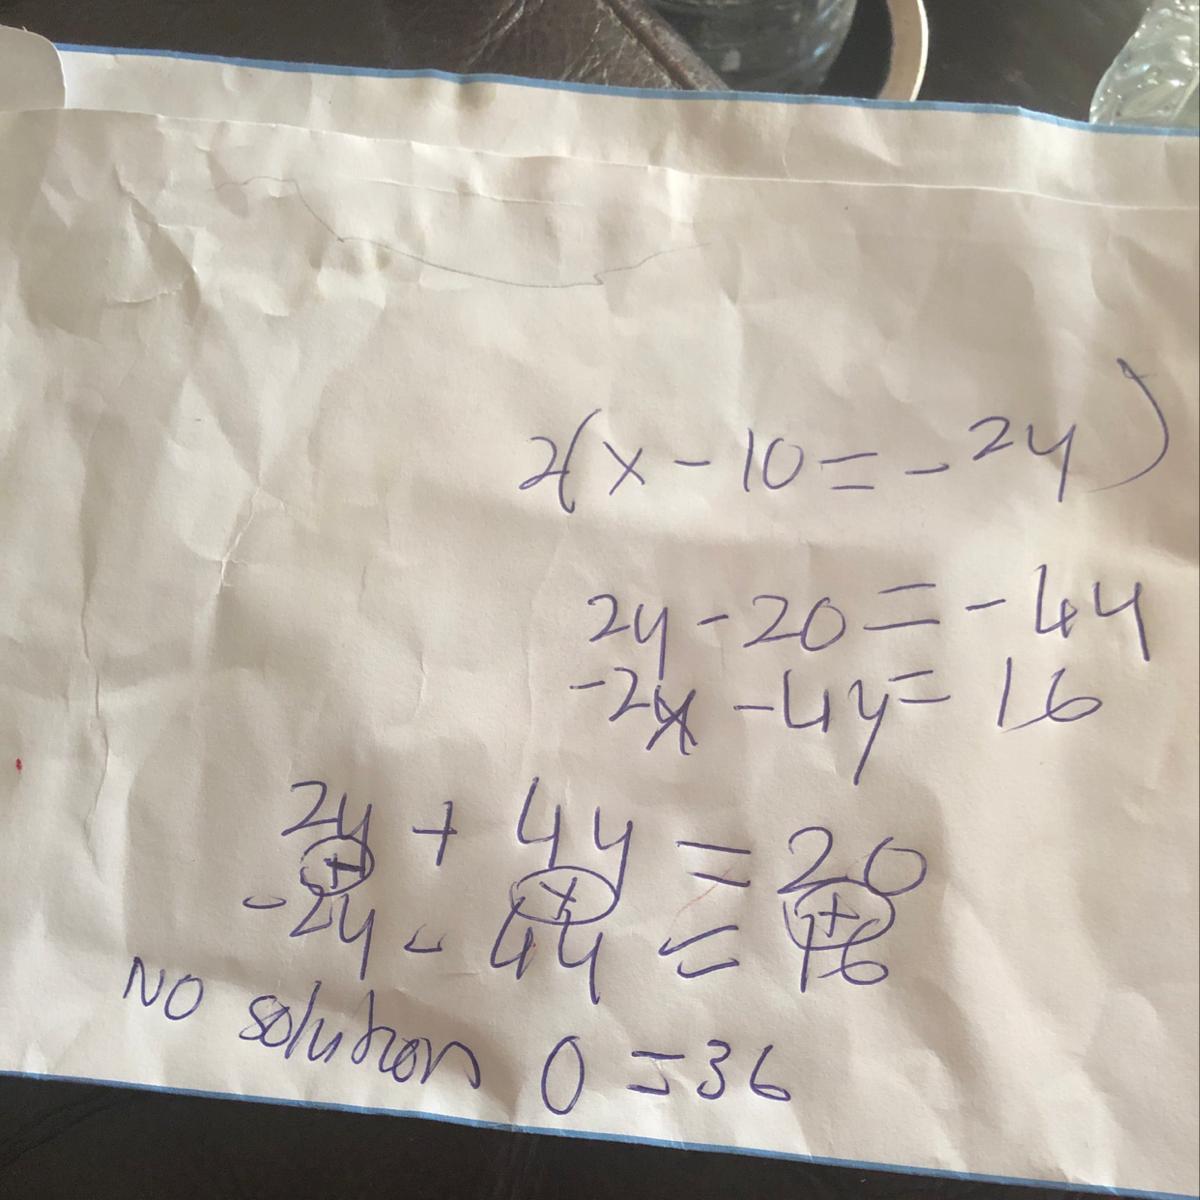 2(x - 10 = - 2y)
2y - 20 = - 4y
-2x - 4y = 16
2y + 4y = 20
+ + +
-2y - 4y = 16
NO solution 0 = 36